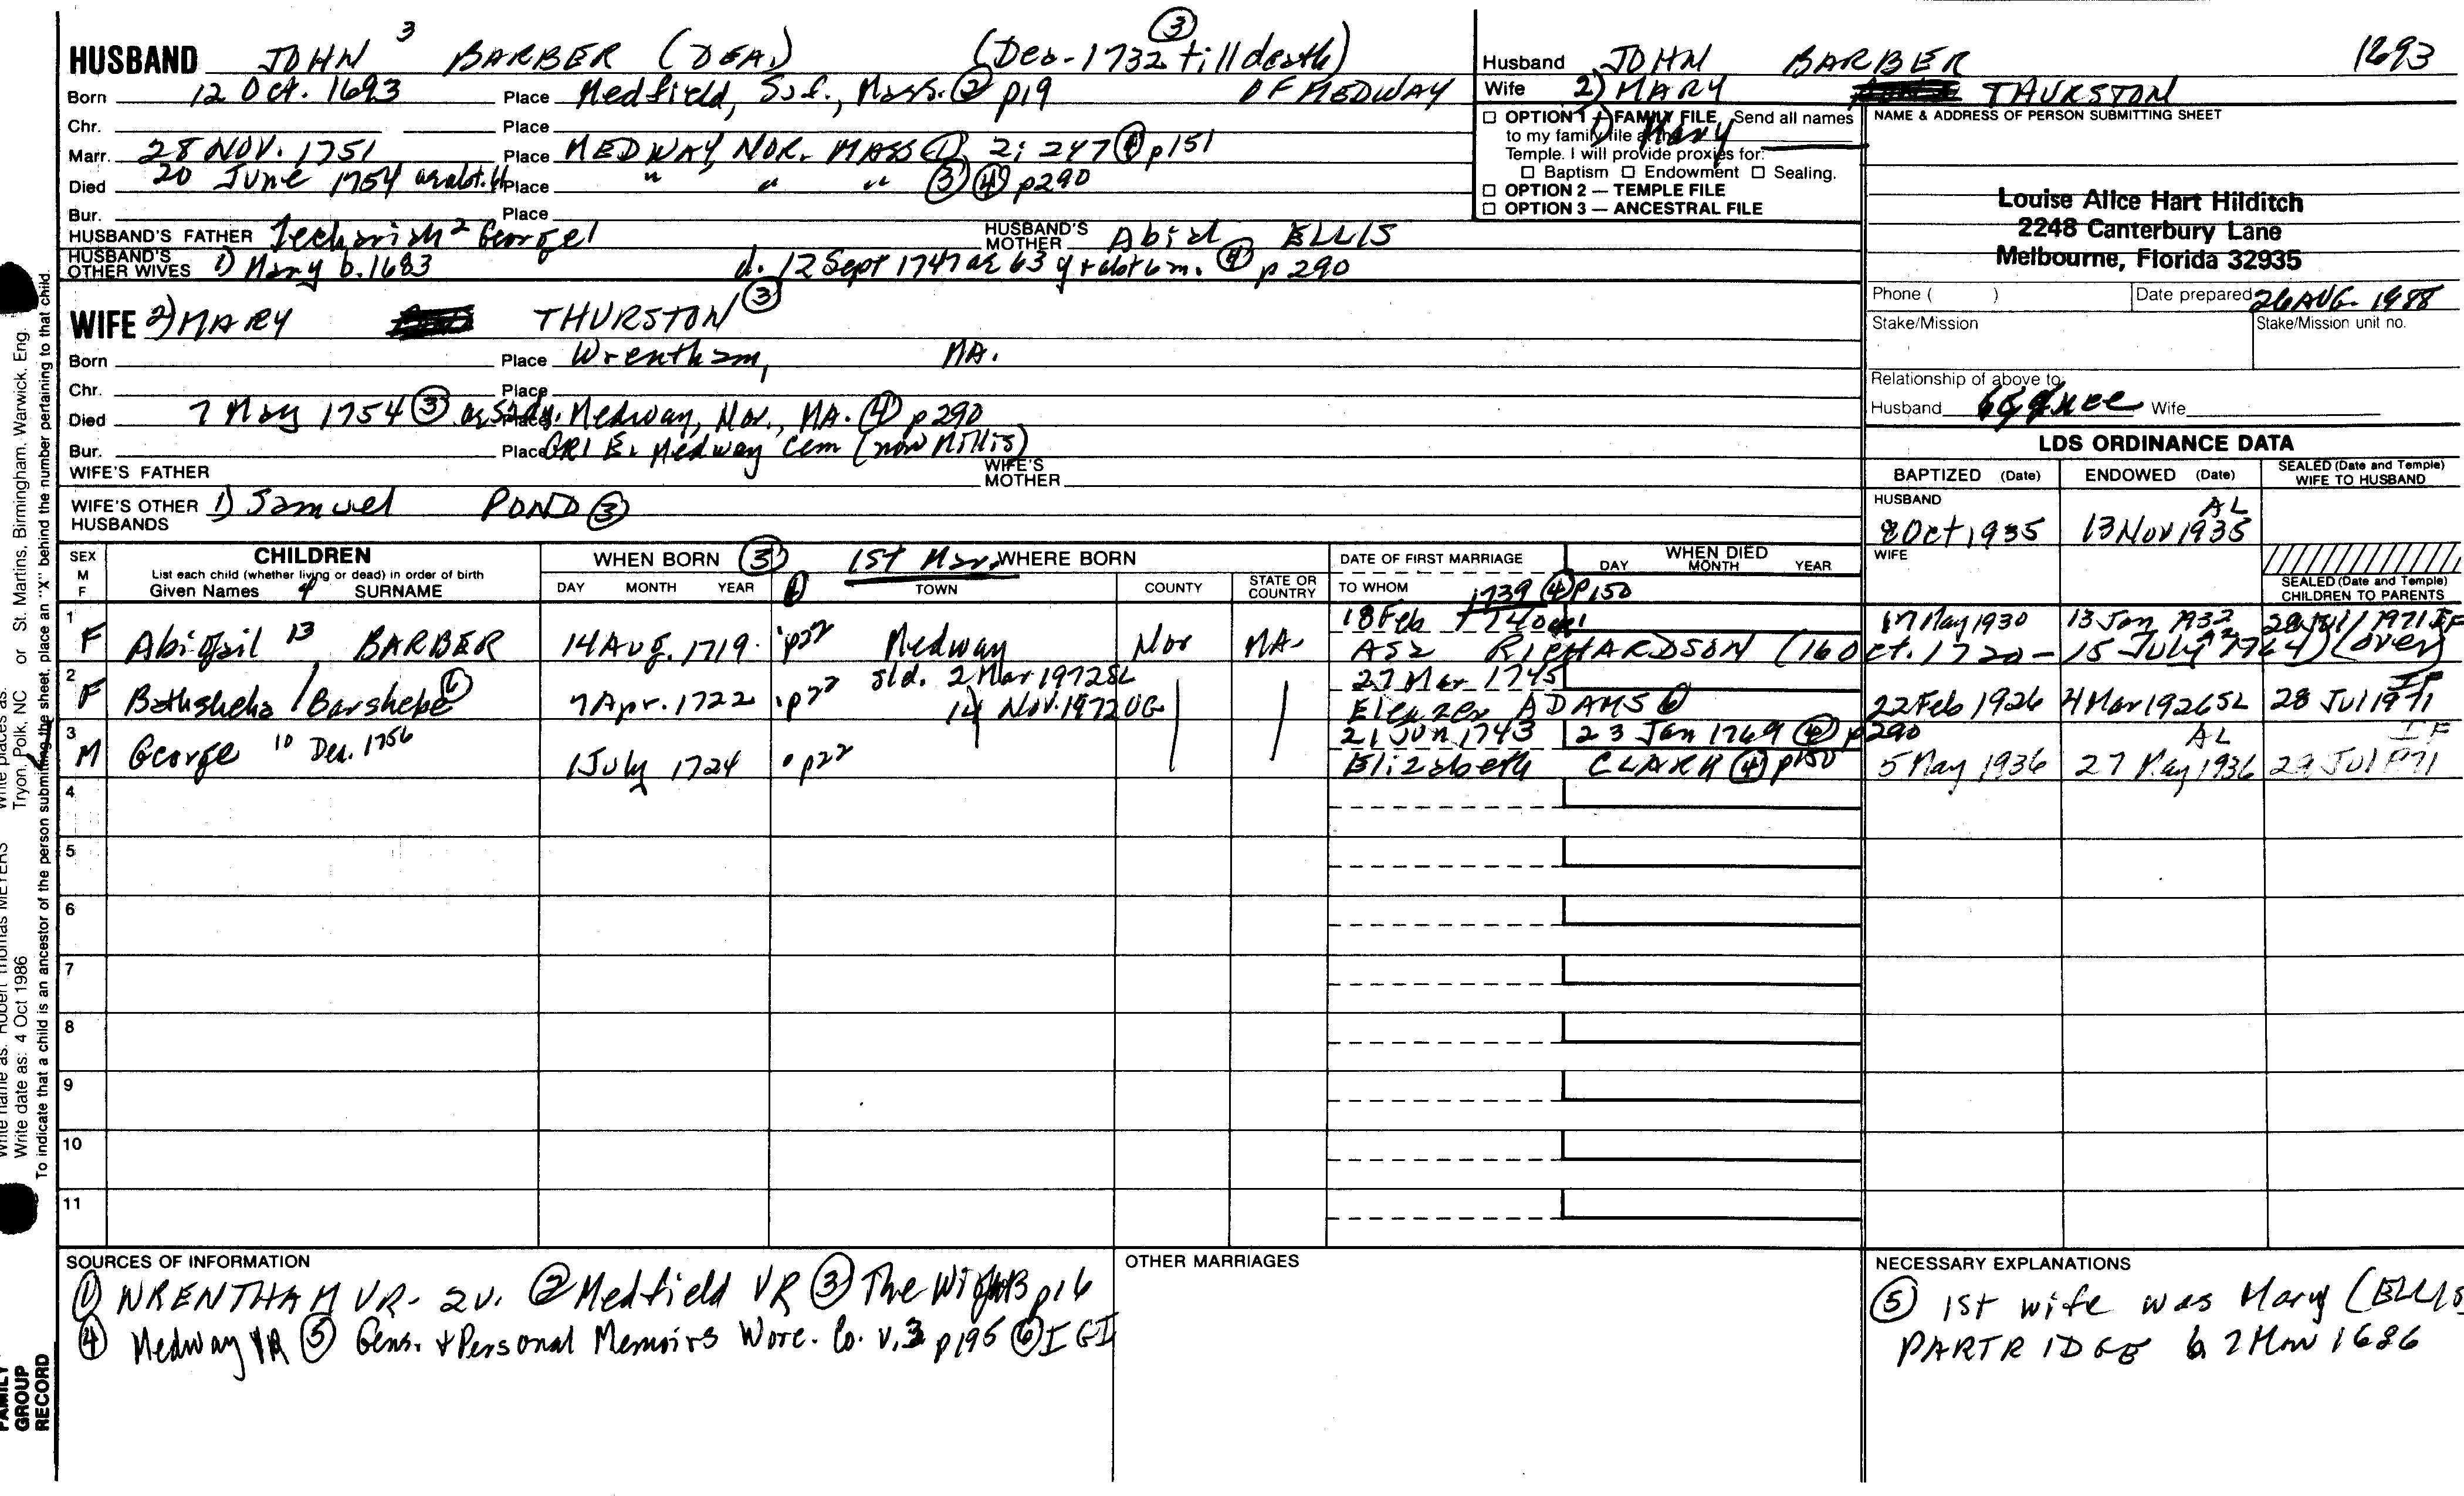 HUSBAND JOHN 3 BARBER (DEA) (Dea-1732 till death) ③
Born 12 Oct. 1693 Place Medfield, Suf., Mass. ② p19 OF MEDWAY
Chr. Place
Marr. 28 NOV. 1751 Place MEDWAY, NOR. MASS ① 2; 247 ④ p151
Died 20 June 1754 ae abt. 61 Place " " " ③ ④ p290
Bur. Place
HUSBAND'S FATHER Zechariah 2 George 1 HUSBAND'S MOTHER Abial ELLIS
HUSBAND'S OTHER WIVES 1) Mary b. 1683 d. 12 Sept 1747 ae 63 y + abt 6 m. ④ p 290
WIFE 2) MARY THURSTON ③
Born Place Wrentham, MA.
Chr. Place
Died 7 May 1754 ③ Place Medway, Nor., MA. ④ p 290
Bur. Place GR1 E. Medway Cem (now Millis)
WIFE'S FATHER WIFE'S MOTHER
WIFE'S OTHER HUSBANDS 1) Samuel POND ③
Husband JOHN BARBER 1693
Wife 2) MARY THURSTON
1) Mary
□ OPTION 1 — FAMILY FILE Send all names
to my family file at the
Temple. I will provide proxies for:
□ Baptism □ Endowment □ Sealing.
□ OPTION 2 — TEMPLE FILE
□ OPTION 3 — ANCESTRAL FILE
NAME & ADDRESS OF PERSON SUBMITTING SHEET
Louise Alice Hart Hilditch
2248 Canterbury Lane
Melbourne, Florida 32935
Phone ( ) Date prepared 26 AUG. 1988
Stake/Mission Stake/Mission unit no.
Relationship of above to:
Husband Wife
LDS ORDINANCE DATA
BAPTIZED (Date) ENDOWED (Date) SEALED (Date and Temple) WIFE TO HUSBAND
HUSBAND AL
8 Oct 1935 13 Nov 1935
WIFE
SEALED (Date and Temple) CHILDREN TO PARENTS
SEX M F CHILDREN WHEN BORN ③ 1ST Mar. WHERE BORN DATE OF FIRST MARRIAGE WHEN DIED
List each child (whether living or dead) in order of birth
Given Names SURNAME DAY MONTH YEAR TOWN COUNTY STATE OR COUNTRY TO WHOM DAY MONTH YEAR
1739 ④ p150
1 18 Feb 1740 17 May 1930 13 Jan 1932 28 Jul 1971 IF
F Abigail 13 BARBER 14 Aug. 1719 p22 Medway Nor MA. Asa RICHARDSON (16 Oct. 1720 - 15 July 1764) (over)
2 sld. 2 Mar 1972 SL 27 Mar 1745 IF
F Bathsheba / Barshebe ⑥ 7 Apr. 1722 p22 14 Nov. 1972 OG Eleazer ADAMS ⑥ 22 Feb 1926 4 Mar 1926 SL 28 Jul 1971
3 21 Jun 1743 23 Jan 1769 ④ p290 AL IF
M George 10 Dea. 1756 1 July 1724 p22 Elizabeth CLARK ④ p150 5 May 1936 27 May 1936 29 Jul 1971
4
5
6
7
8
9
10
11
SOURCES OF INFORMATION
① WRENTHAM VR - 2v. ② Medfield VR ③ The Wights p16
④ Medway VR ⑤ Gens. + Personal Memoirs Worc. Co. v. 3 p195 ⑥ IGI
OTHER MARRIAGES
NECESSARY EXPLANATIONS
⑤ 1st wife was Mary (ELLIS
PARTRIDGE b 7 Mar 1686
St. Martins, Birmingham, Warwick, Eng.
Write places as: Tryon, Polk, NC or
Write name as: Robert Thomas MEYERS
Write date as: 4 Oct 1986
To indicate that a child is an ancestor of the person submitting the sheet, place an "X" behind the number pertaining to that child.
FAMILY
GROUP
RECORD